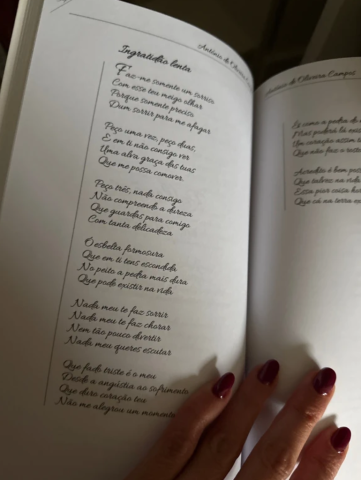 António de Oliveira
Ingratidão lenta
Faz-me somente um sorriso
Com esse teu meigo olhar
Porque somente preciso
Dum sorrir para me afagar
Peço uma vez, peço duas,
E em ti não consigo ver
Uma alva graça das tuas
Que me possa comover.
Peço três, nada consigo
Não compreendo a dureza
Que guardas para comigo
Com tanta delicadeza
Ó esbelta formosura
Que em ti tens escondida
No peito a pedra mais dura
Que pode existir na vida
Nada meu te faz sorrir
Nada meu te faz chorar
Nem tão pouco divertir
Nada meu queres escutar
Que fado triste é o meu
Desde a angústia ao sofrimento
Que duro coração teu
Não me alegrou um momento
António de Oliveira Campos
És como a pedra
Mas poderá
Um coração assim
Que não faz o
Acredito é bem
Que talvez na vida
Essa pior coisa
Que cá na terra